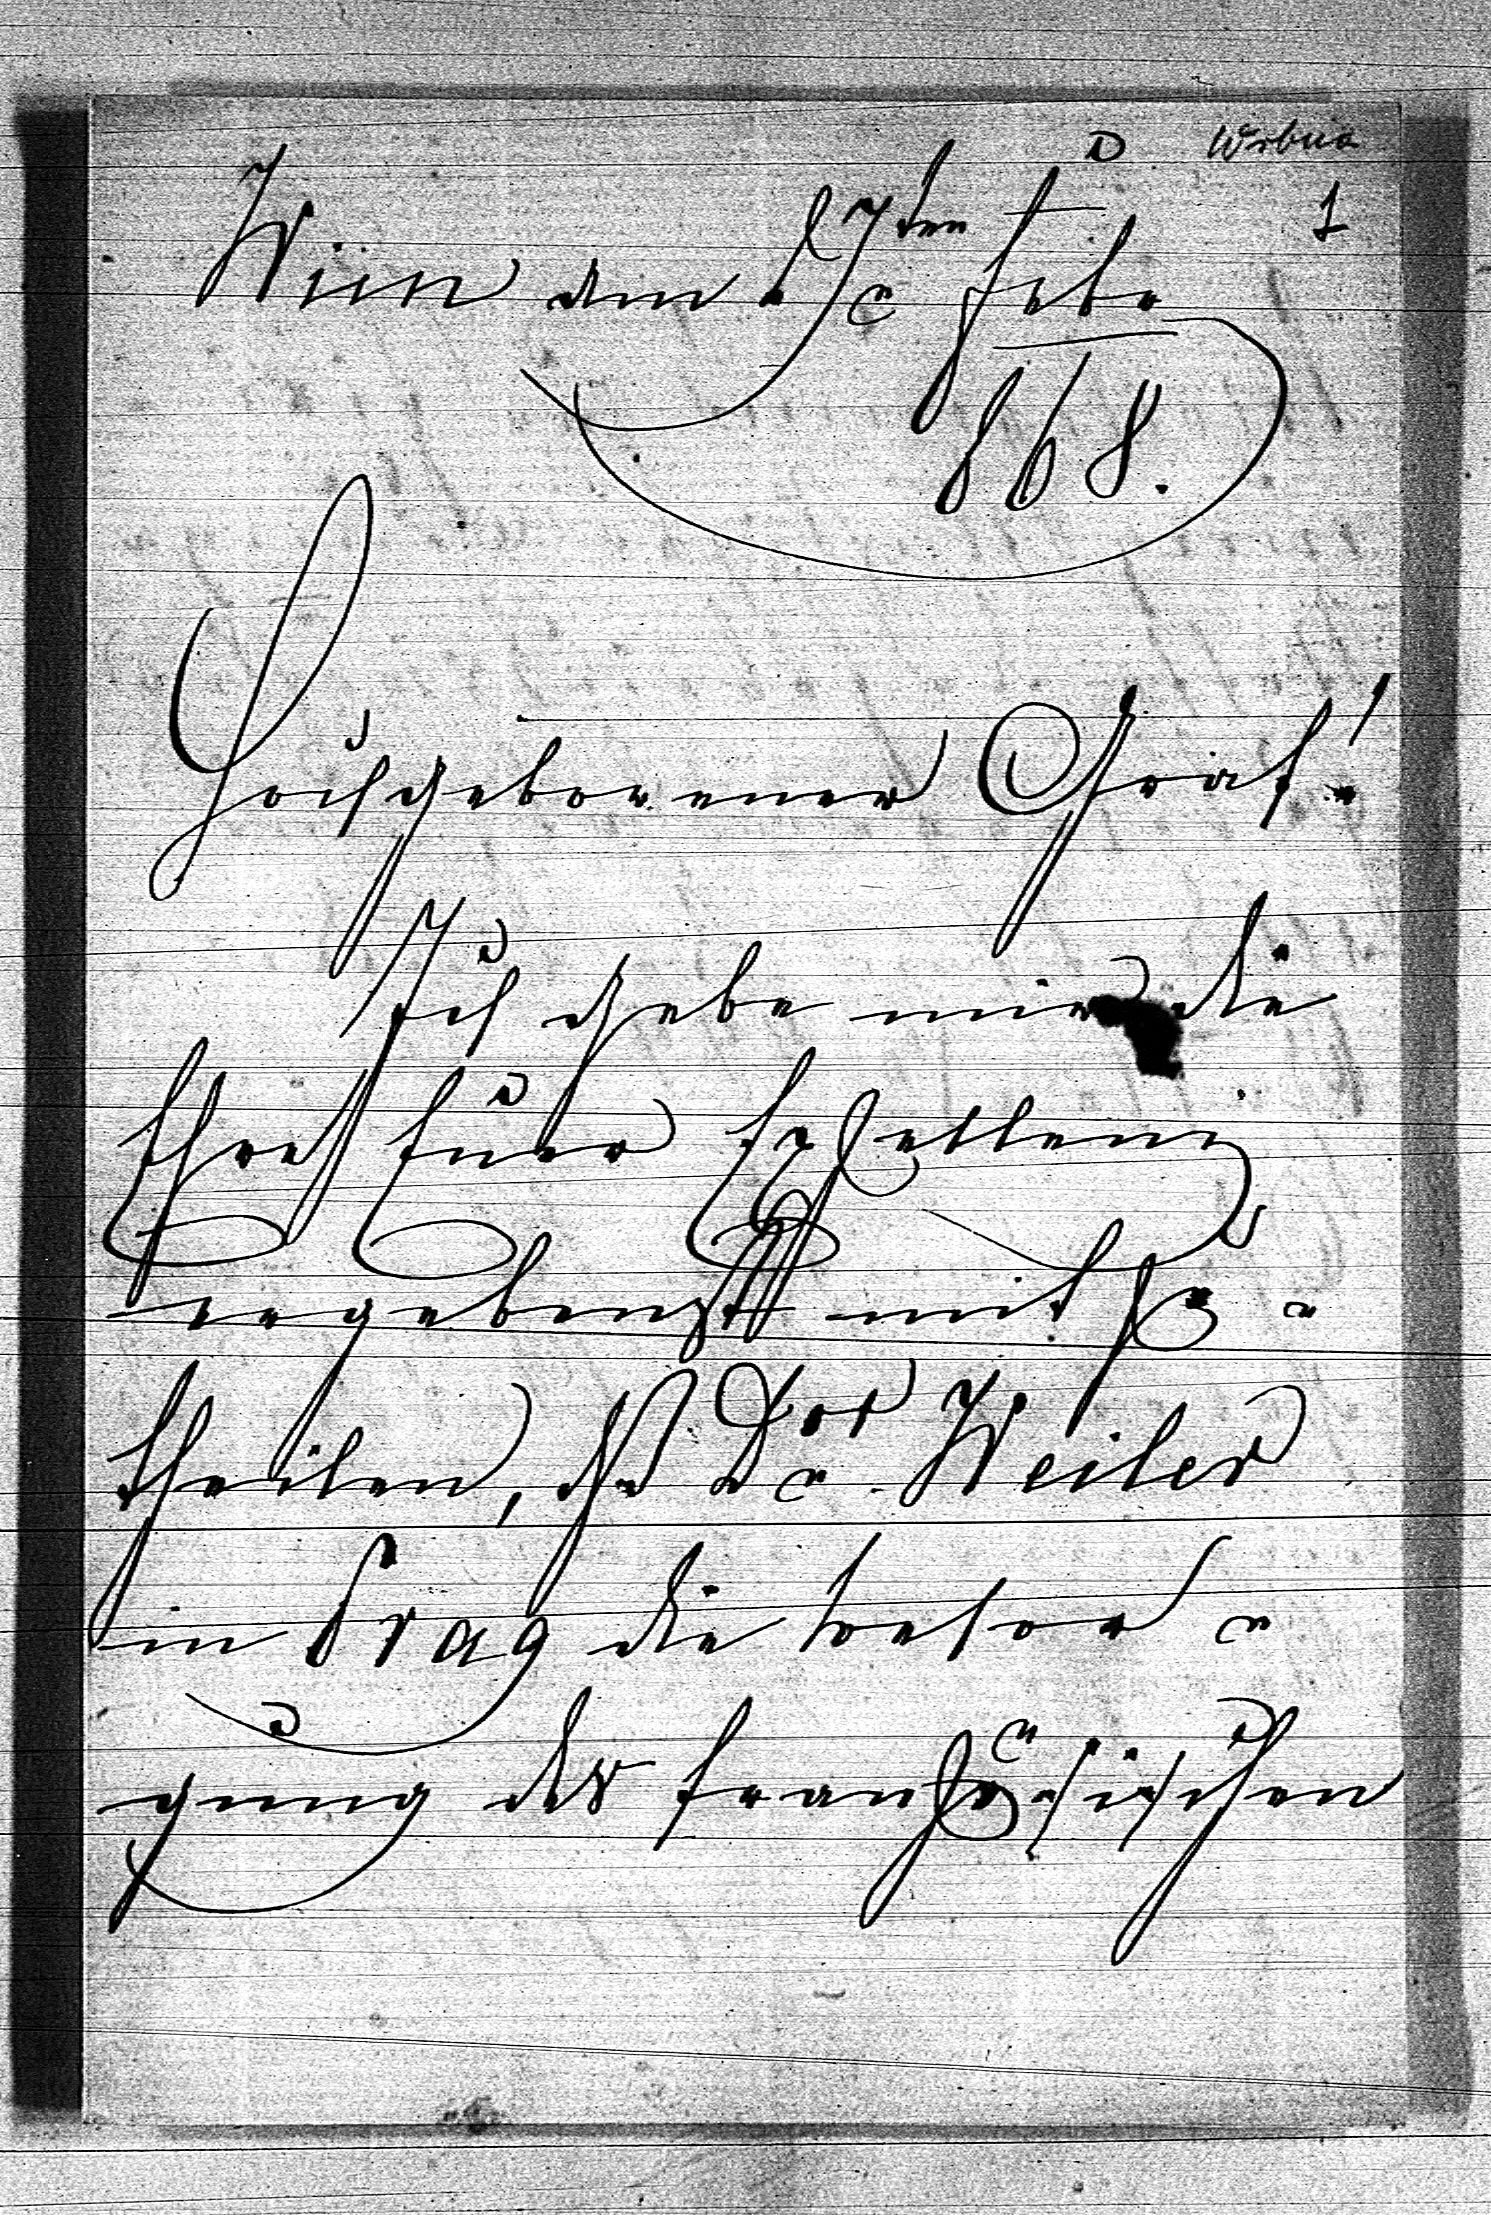 D Wrbna
1
Wien am 17ten Feb.
868.
Hochgeborener Graf!
Ich gebe mir die
Ehre Euer Exzellenz
ergebenst mitzu
theilen, daß Dor Weiler
in Prag die Besor
gung der französischen